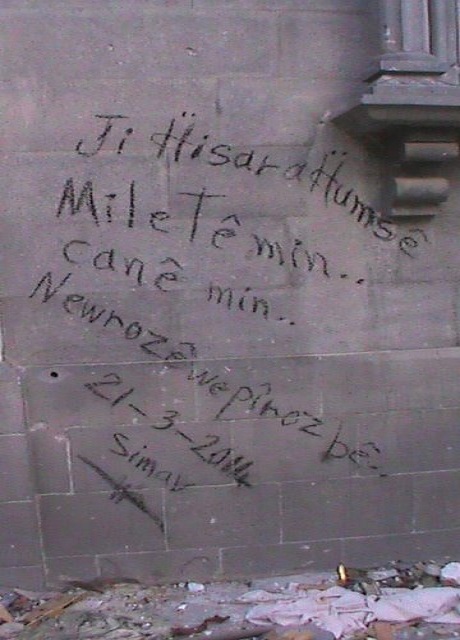 Ji Ḧisara Ḧumsê
MileTê min..
canê min..
Newrozê we pîroz bê.
21-3-2014
Simav